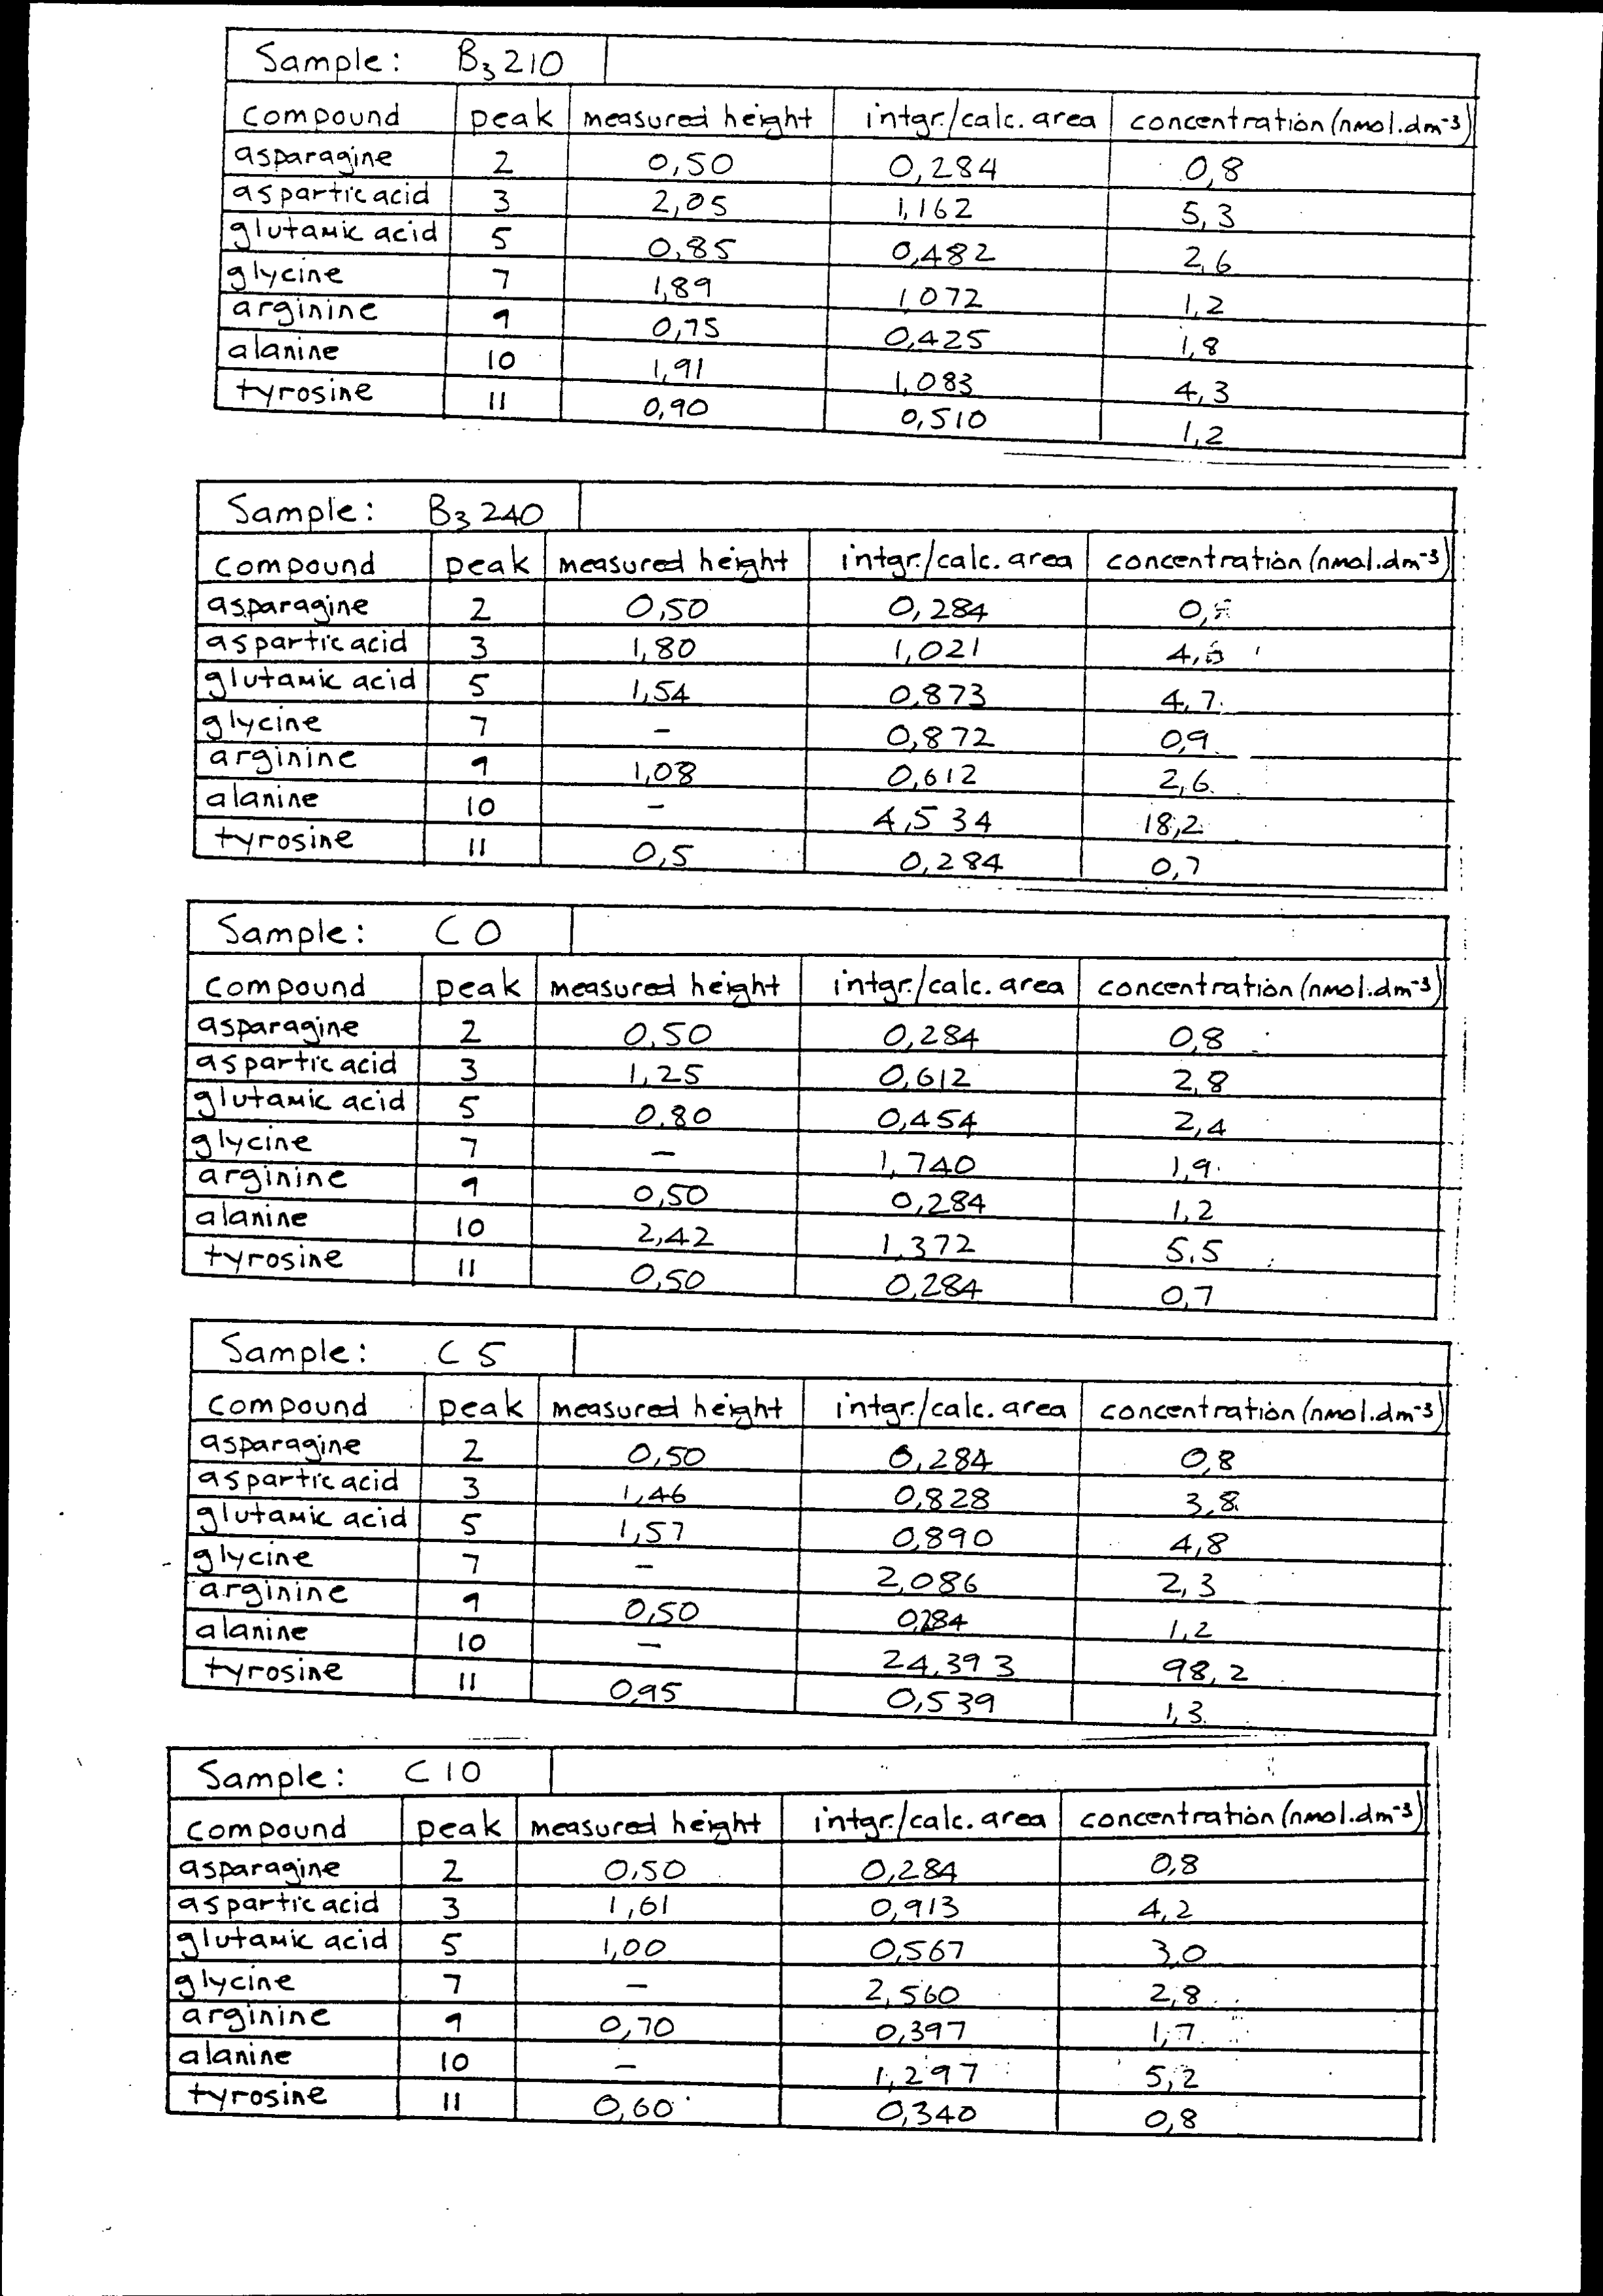 Sample: B3 210
compound peak measured height intgr./calc. area concentration (nmol.dm-3)
asparagine 2 0,50 0,284 0,8
aspartic acid 3 2,05 1,162 5,3
glutamic acid 5 0,85 0,482 2,6
glycine 7 1,89 1,072 1,2
arginine 9 0,75 0,425 1,8
alanine 10 1,91 1,083 4,3
tyrosine 11 0,90 0,510 1,2
Sample: B3 240
compound peak measured height intgr./calc. area concentration (nmol.dm-3)
asparagine 2 0,50 0,284
aspartic acid 3 1,80 1,021
glutamic acid 5 1,54 0,873 4,7
glycine 7 - 0,872 0,9
arginine 9 1,08 0,612 2,6
alanine 10 - 4,534 18,2
tyrosine 11 0,5 0,284 0,7
Sample: C 0
compound peak measured height intgr./calc. area concentration (nmol.dm-3)
asparagine 2 0,50 0,284 0,8
aspartic acid 3 1,25 0,612 2,8
glutamic acid 5 0,80 0,454 2,4
glycine 7 - 1,740 1,9
arginine 9 0,50 0,284 1,2
alanine 10 2,42 1,372 5,5
tyrosine 11 0,50 0,284 0,7
Sample: C 5
compound peak measured height intgr./calc. area concentration (nmol.dm-3)
asparagine 2 0,50 0,284 0,8
aspartic acid 3 1,46 0,828 3,8
glutamic acid 5 1,57 0,890 4,8
glycine 7 - 2,086 2,3
arginine 9 0,50 0,284 1,2
alanine 10 - 24,393 98,2
tyrosine 11 0,95 0,539 1,3
Sample: C 10
compound peak measured height intgr./calc. area concentration (nmol.dm-3)
asparagine 2 0,50 0,284 0,8
aspartic acid 3 1,61 0,913 4,2
glutamic acid 5 1,00 0,567 3,0
glycine 7 - 2,560 2,8
arginine 9 0,70 0,397 1,7
alanine 10 - 1,297 5,2
tyrosine 11 0,60 0,340 0,8